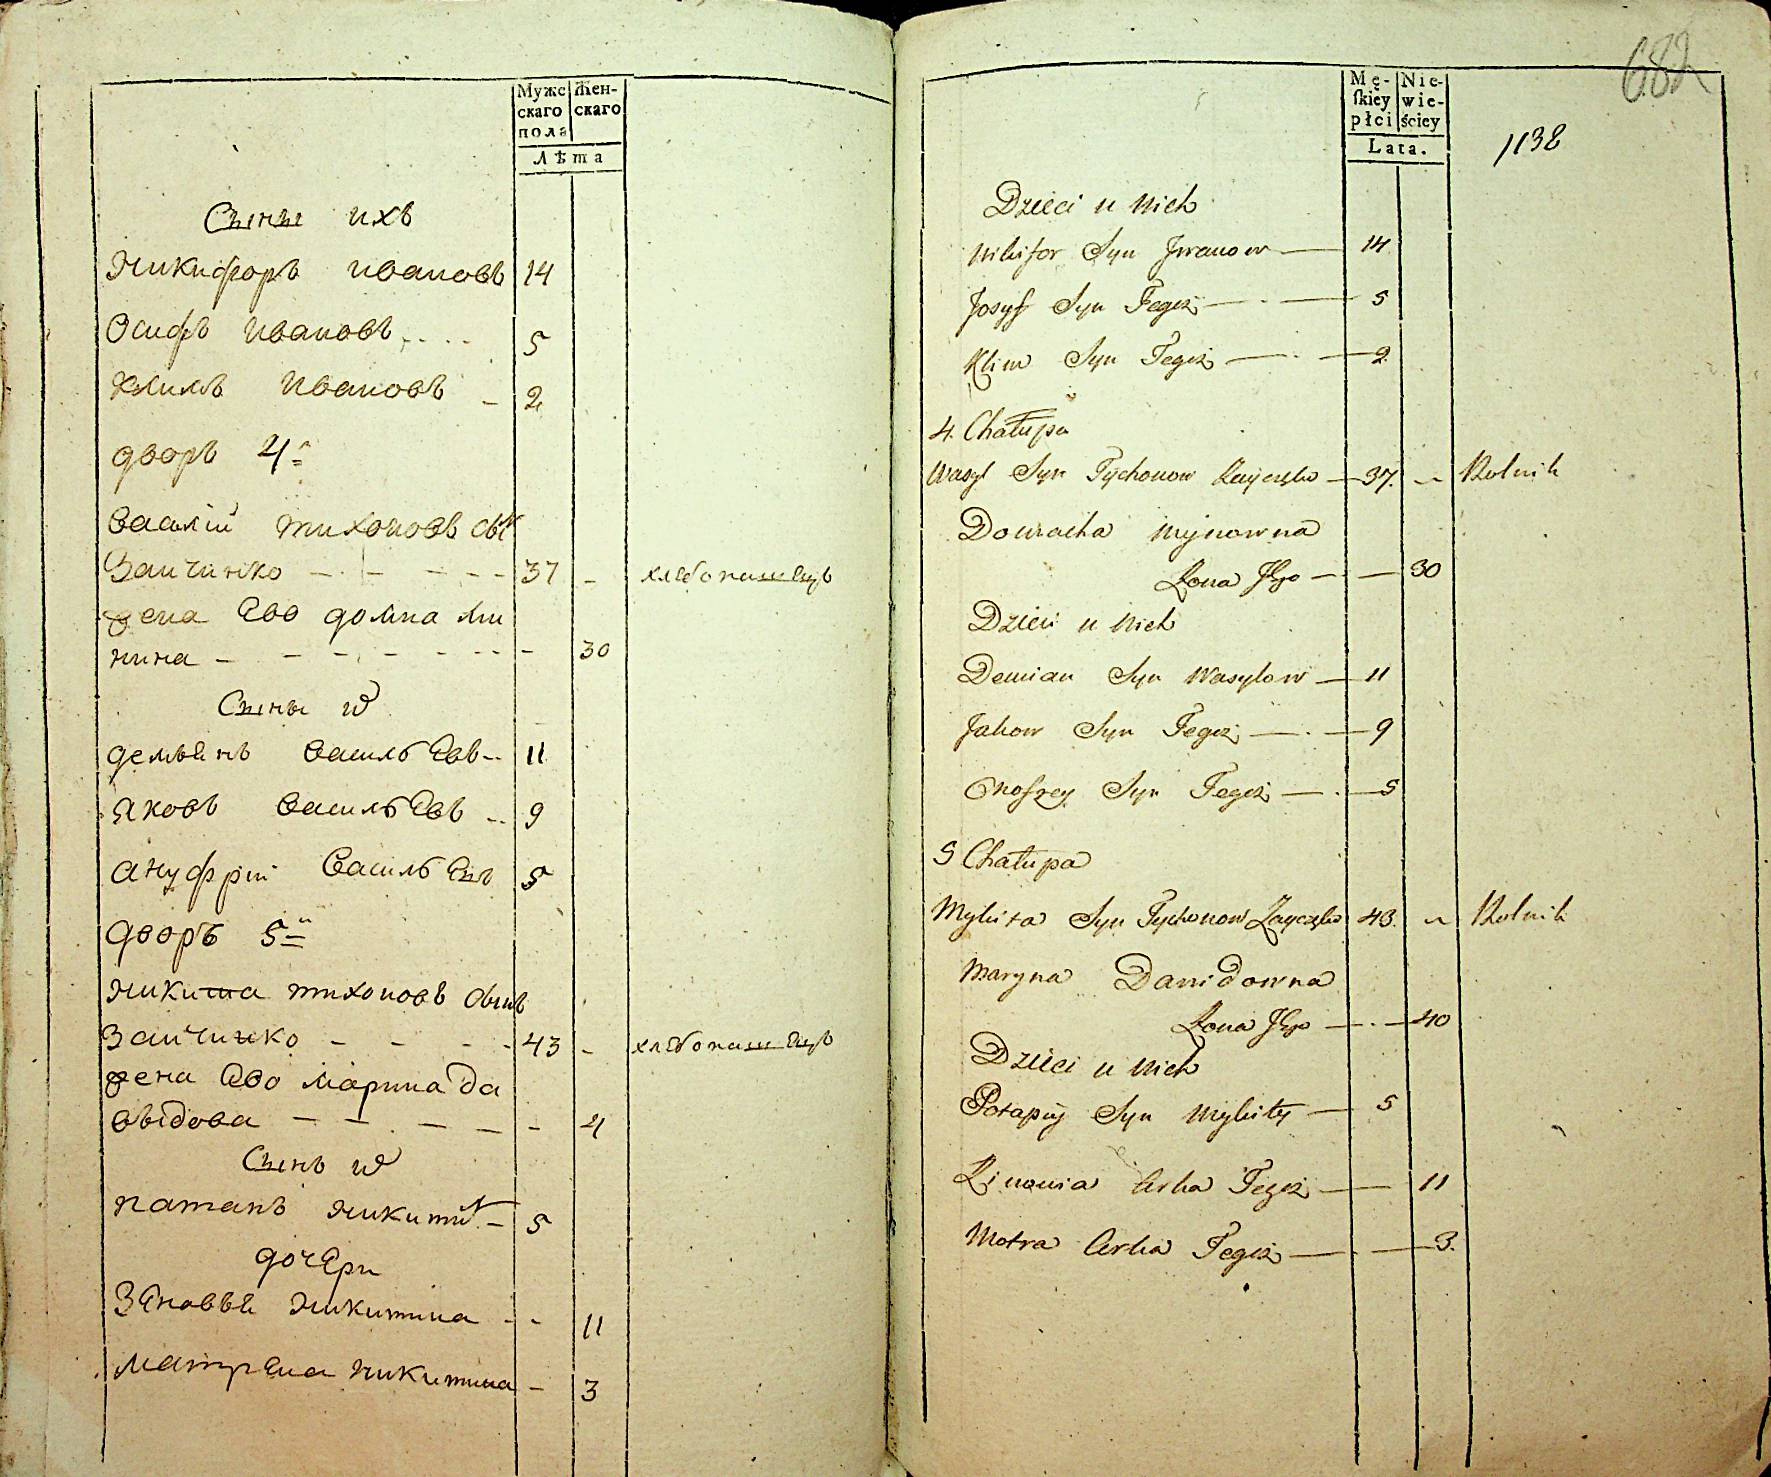 Муже скаго пола
Жен- скаго
Лѣта
Сыны ихъ
Никифоръ Ивановъ 14
Осифъ Ивановъ 5
Климъ Ивановъ 2
дворъ 4й
Василій тихоновъ сынъ
Заичинко 37 хлебопашецъ
жена Ево домна Ми
нина 30
Сыны их
демьянъ Васильевъ 11
яковъ Васильевъ 9
Ануфрій Васильевъ 5
дворъ 5й
Никита тихоновъ сынъ
Заичинко 43 хлебопашецъ
жена Ево Марина Да
выдова 4
Сынъ их
патапъ Никитин 5
дочери
Зеновья Никитина 11
Матрена Никитина 3
682
Mę- skiey płci
Nie- wie- ściey
Lata.
1138
Dzieci u Nich
Nikifor Syn Jwanow 14
Josyf Syn Tegoż 5
Klim Syn Tegoż 2
4. Chałupa
Wasyl Syn Tychonow Zayczęko 37. Rolnik
Domacha Mynowna
Żona Jego 30
Dzieci u Nich
Demian Syn Wasylow 11
Jakow Syn Tegoż 9
Onofrey Syn Tegoż 5
5 Chałupa
Mykita Syn Tychonow Zayczęko 43. Rolnik
Maryna Dawidowna
Żona Jego 40
Dzieci u Nich
Potapiy Syn Mykity 5
Zinowia Corka Tegoż 11
Motra Corka Tegoż 3.